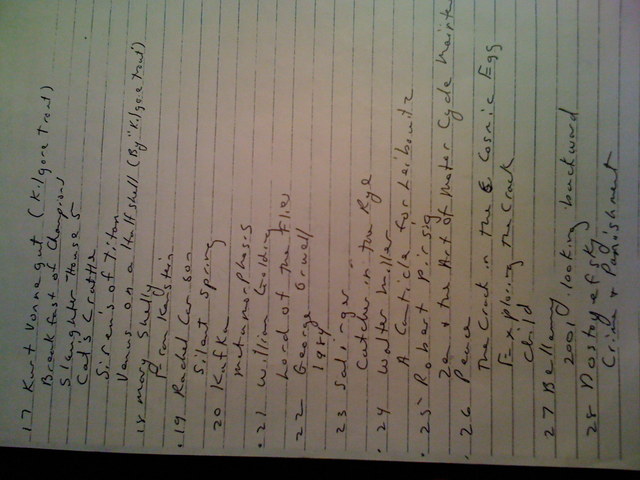 17 Kurt Vonnegut (Kilgore Trout)
Breakfast of Champions
Slaughter House 5
Cat's Crattle
Sirens of Titan
Venus on a Halfshell (By "Kilgore Trout)
18 Mary Shelly
Frankenstein
19 Rachel Carson
Silent Spring
20 Kafka
metamorphasis
21 William Golding
Lord of the Flie
22 George Orwell
1984
23 Salinger
Catcher in the Rye
24 Walter Miller
A Canticle for Leibowitz
25 Robert Pirsig
Zen & the Art of Motor Cycle Mainte
26 Pearce
The Crack in the Cosmic Egg
Exploring the Crack
Child
27 Bellamy
2001 looking backward
28 Dostoyefsky
Crime & Punishment